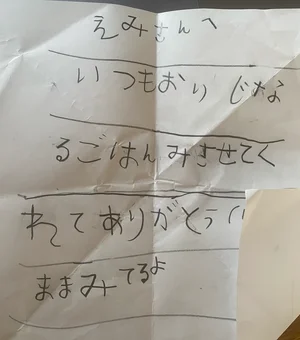 えみさんへ
いつもおりじな
るごはんみさせてく
れてありがとう
ままみてるよ